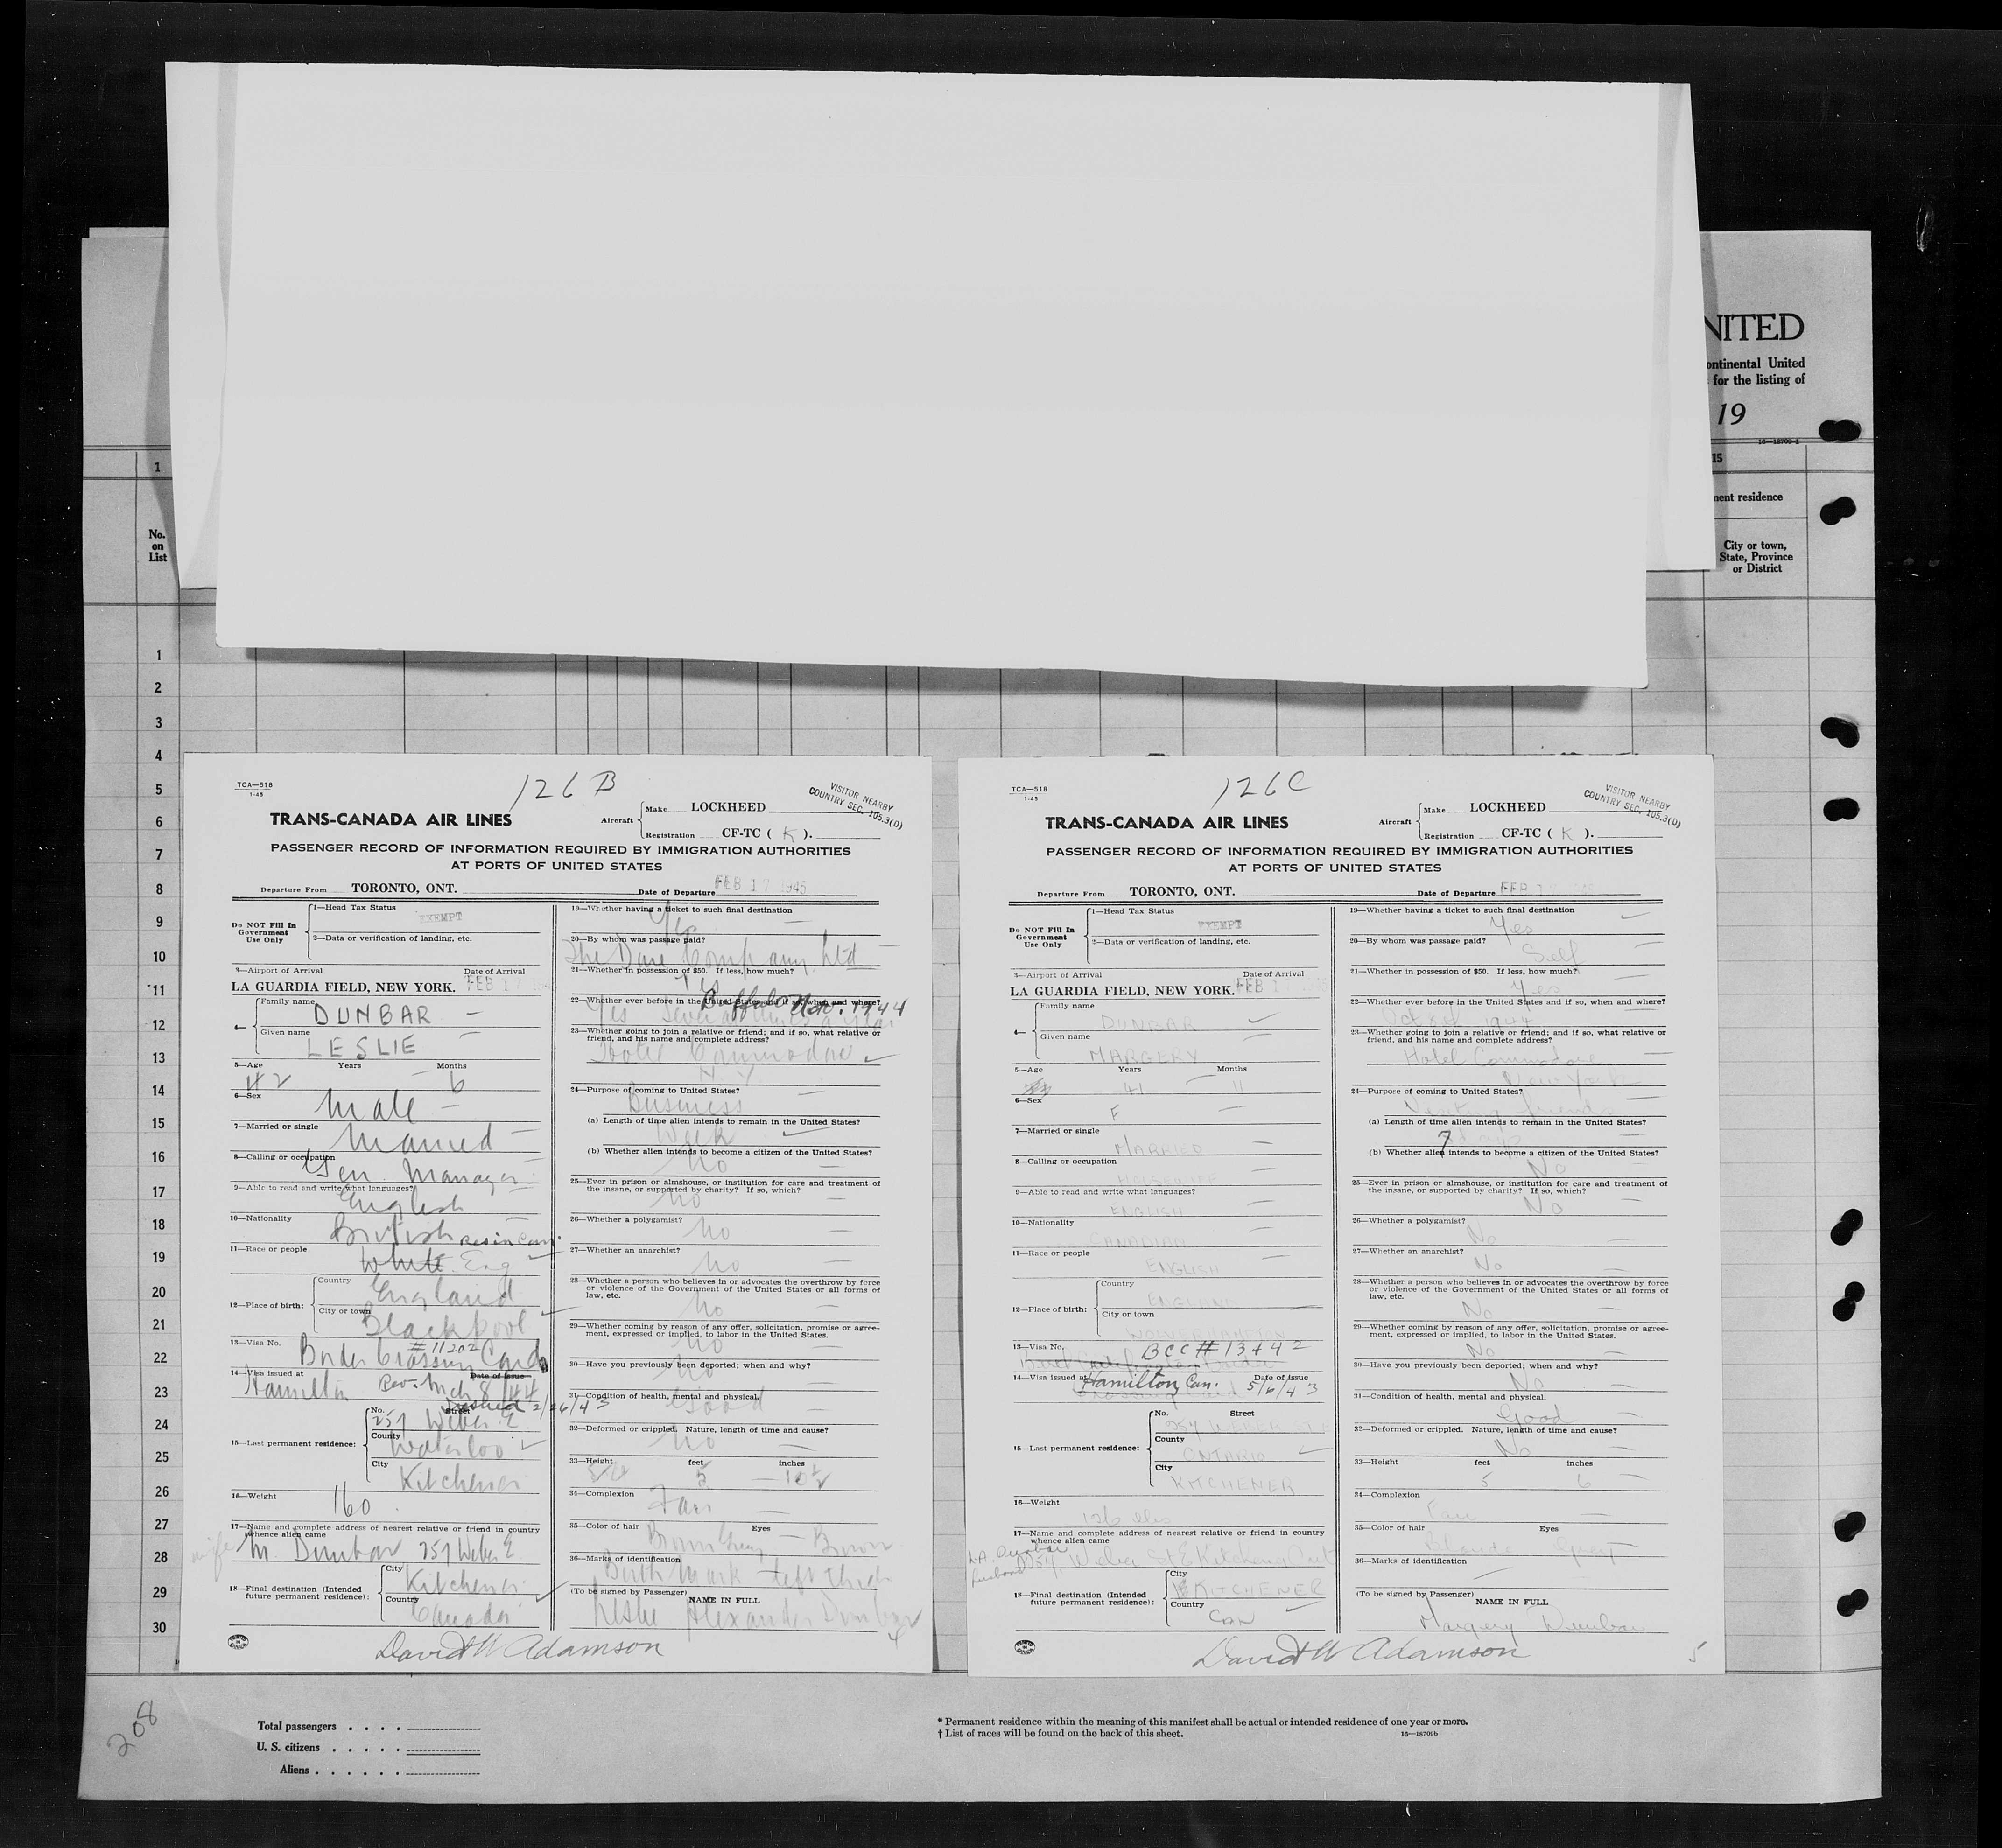 NITED
ontinental United
for the listing of
19
16—18700-1
1
15
nent residence
No.
on
List
City or town,
State, Province
or District
1
2
3
4
5
6
7
8
9
10
11
12
13
14
15
16
17
18
19
20
21
22
23
24
25
26
27
28
29
30
TCA—518
1-45
126 B
VISITOR NEARBY
COUNTRY SEC. 105.3(D)
TRANS-CANADA AIR LINES
Aircraft
Make LOCKHEED
Registration CF-TC ( K ).
PASSENGER RECORD OF INFORMATION REQUIRED BY IMMIGRATION AUTHORITIES
AT PORTS OF UNITED STATES
Departure From TORONTO, ONT.
Date of Departure FEB 17 1945
Do NOT Fill In
Government
Use Only
1—Head Tax Status
EXEMPT
2—Data or verification of landing, etc.
3—Airport of Arrival Date of Arrival
LA GUARDIA FIELD, NEW YORK. FEB 17 1945
4—
Family name
DUNBAR
Given name
LESLIE
5—Age Years Months
42 6
6—Sex
Male
7—Married or single
Married
8—Calling or occupation
Gen. Manager
9—Able to read and write what languages?
English
10—Nationality
British Res in Can.
11—Race or people
White. Eng
12—Place of birth:
Country
England
City or town
Blackpool
13—Visa No. # 11202
Border Crossing Card
14—Visa issued at Date of issue
Hamilton Rev. Mch 8/44
Issued 2/26/43
15—Last permanent residence:
No. Street
257 Weber E
County
Waterloo
City
Kitchener
16—Weight
160
17—Name and complete address of nearest relative or friend in country
whence alien came
wife M. Dunbar 257 Weber E
18—Final destination (Intended
future permanent residence):
City
Kitchener
Country
Canada
19—Whether having a ticket to such final destination
Yes
20—By whom was passage paid?
The Dare Company Ltd
21—Whether in possession of $50. If less, how much?
Yes
22—Whether ever before in the United States and if so, when and where?
Buffalo Nov. 1944
Yes several times a year
23—Whether going to join a relative or friend; and if so, what relative or
friend, and his name and complete address?
Hotel Commodore
N Y
24—Purpose of coming to United States?
Business
(a) Length of time alien intends to remain in the United States?
Week
(b) Whether alien intends to become a citizen of the United States?
No
25—Ever in prison or almshouse, or institution for care and treatment of
the insane, or supported by charity? If so, which?
No
26—Whether a polygamist?
No
27—Whether an anarchist?
No
28—Whether a person who believes in or advocates the overthrow by force
or violence of the Government of the United States or all forms of
law, etc.
No
29—Whether coming by reason of any offer, solicitation, promise or agree-
ment, expressed or implied, to labor in the United States.
No
30—Have you previously been deported; when and why?
No
31—Condition of health, mental and physical.
Good
32—Deformed or crippled. Nature, length of time and cause?
No
33—Height feet inches
5 10½
34—Complexion
Fair
35—Color of hair Eyes
Brown Grey Brown
36—Marks of identification
Birth Mark left thigh
(To be signed by Passenger)
NAME IN FULL
Leslie Alexander Dunbar
4
David W Adamson
TCA—518
1-45
126C
VISITOR NEARBY
COUNTRY SEC. 105.3(D)
TRANS-CANADA AIR LINES
Aircraft
Make LOCKHEED
Registration CF-TC ( K ).
PASSENGER RECORD OF INFORMATION REQUIRED BY IMMIGRATION AUTHORITIES
AT PORTS OF UNITED STATES
Departure From TORONTO, ONT.
Date of Departure FEB 17 1945
Do NOT Fill In
Government
Use Only
1—Head Tax Status
EXEMPT
2—Data or verification of landing, etc.
3—Airport of Arrival Date of Arrival
LA GUARDIA FIELD, NEW YORK. FEB 17 1945
4—
Family name
DUNBAR
Given name
MARGERY
5—Age Years Months
41 11
6—Sex
F
7—Married or single
MARRIED
8—Calling or occupation
HOUSEWIFE
9—Able to read and write what languages?
ENGLISH
10—Nationality
CANADIAN
11—Race or people
ENGLISH
12—Place of birth:
Country
ENGLAND
City or town
WOLVERHAMPTON
13—Visa No. BCC # 13442
14—Visa issued at Date of issue
Hamilton, Can. 5/6/43
15—Last permanent residence:
No. Street
257 WEBER ST E
County
ONTARIO
City
KITCHENER
16—Weight
126 lbs
17—Name and complete address of nearest relative or friend in country
whence alien came
L.A. Dunbar
husband 257 Weber St E Kitchener Ont
18—Final destination (Intended
future permanent residence):
City
KITCHENER
Country
CAN
19—Whether having a ticket to such final destination
Yes
20—By whom was passage paid?
Self
21—Whether in possession of $50. If less, how much?
Yes
22—Whether ever before in the United States and if so, when and where?
1944
23—Whether going to join a relative or friend; and if so, what relative or
friend, and his name and complete address?
Hotel Commodore
New York
24—Purpose of coming to United States?
Visiting friends
(a) Length of time alien intends to remain in the United States?
7 days
(b) Whether alien intends to become a citizen of the United States?
No
25—Ever in prison or almshouse, or institution for care and treatment of
the insane, or supported by charity? If so, which?
No
26—Whether a polygamist?
No
27—Whether an anarchist?
No
28—Whether a person who believes in or advocates the overthrow by force
or violence of the Government of the United States or all forms of
law, etc.
No
29—Whether coming by reason of any offer, solicitation, promise or agree-
ment, expressed or implied, to labor in the United States.
No
30—Have you previously been deported; when and why?
No
31—Condition of health, mental and physical.
Good
32—Deformed or crippled. Nature, length of time and cause?
No
33—Height feet inches
5 6
34—Complexion
Fair
35—Color of hair Eyes
Blonde
36—Marks of identification
(To be signed by Passenger)
NAME IN FULL
Margery Dunbar
David W Adamson
5
208
Total passengers . . . .
U. S. citizens . . . . .
Aliens . . . . . .
* Permanent residence within the meaning of this manifest shall be actual or intended residence of one year or more.
† List of races will be found on the back of this sheet.
16—18700b